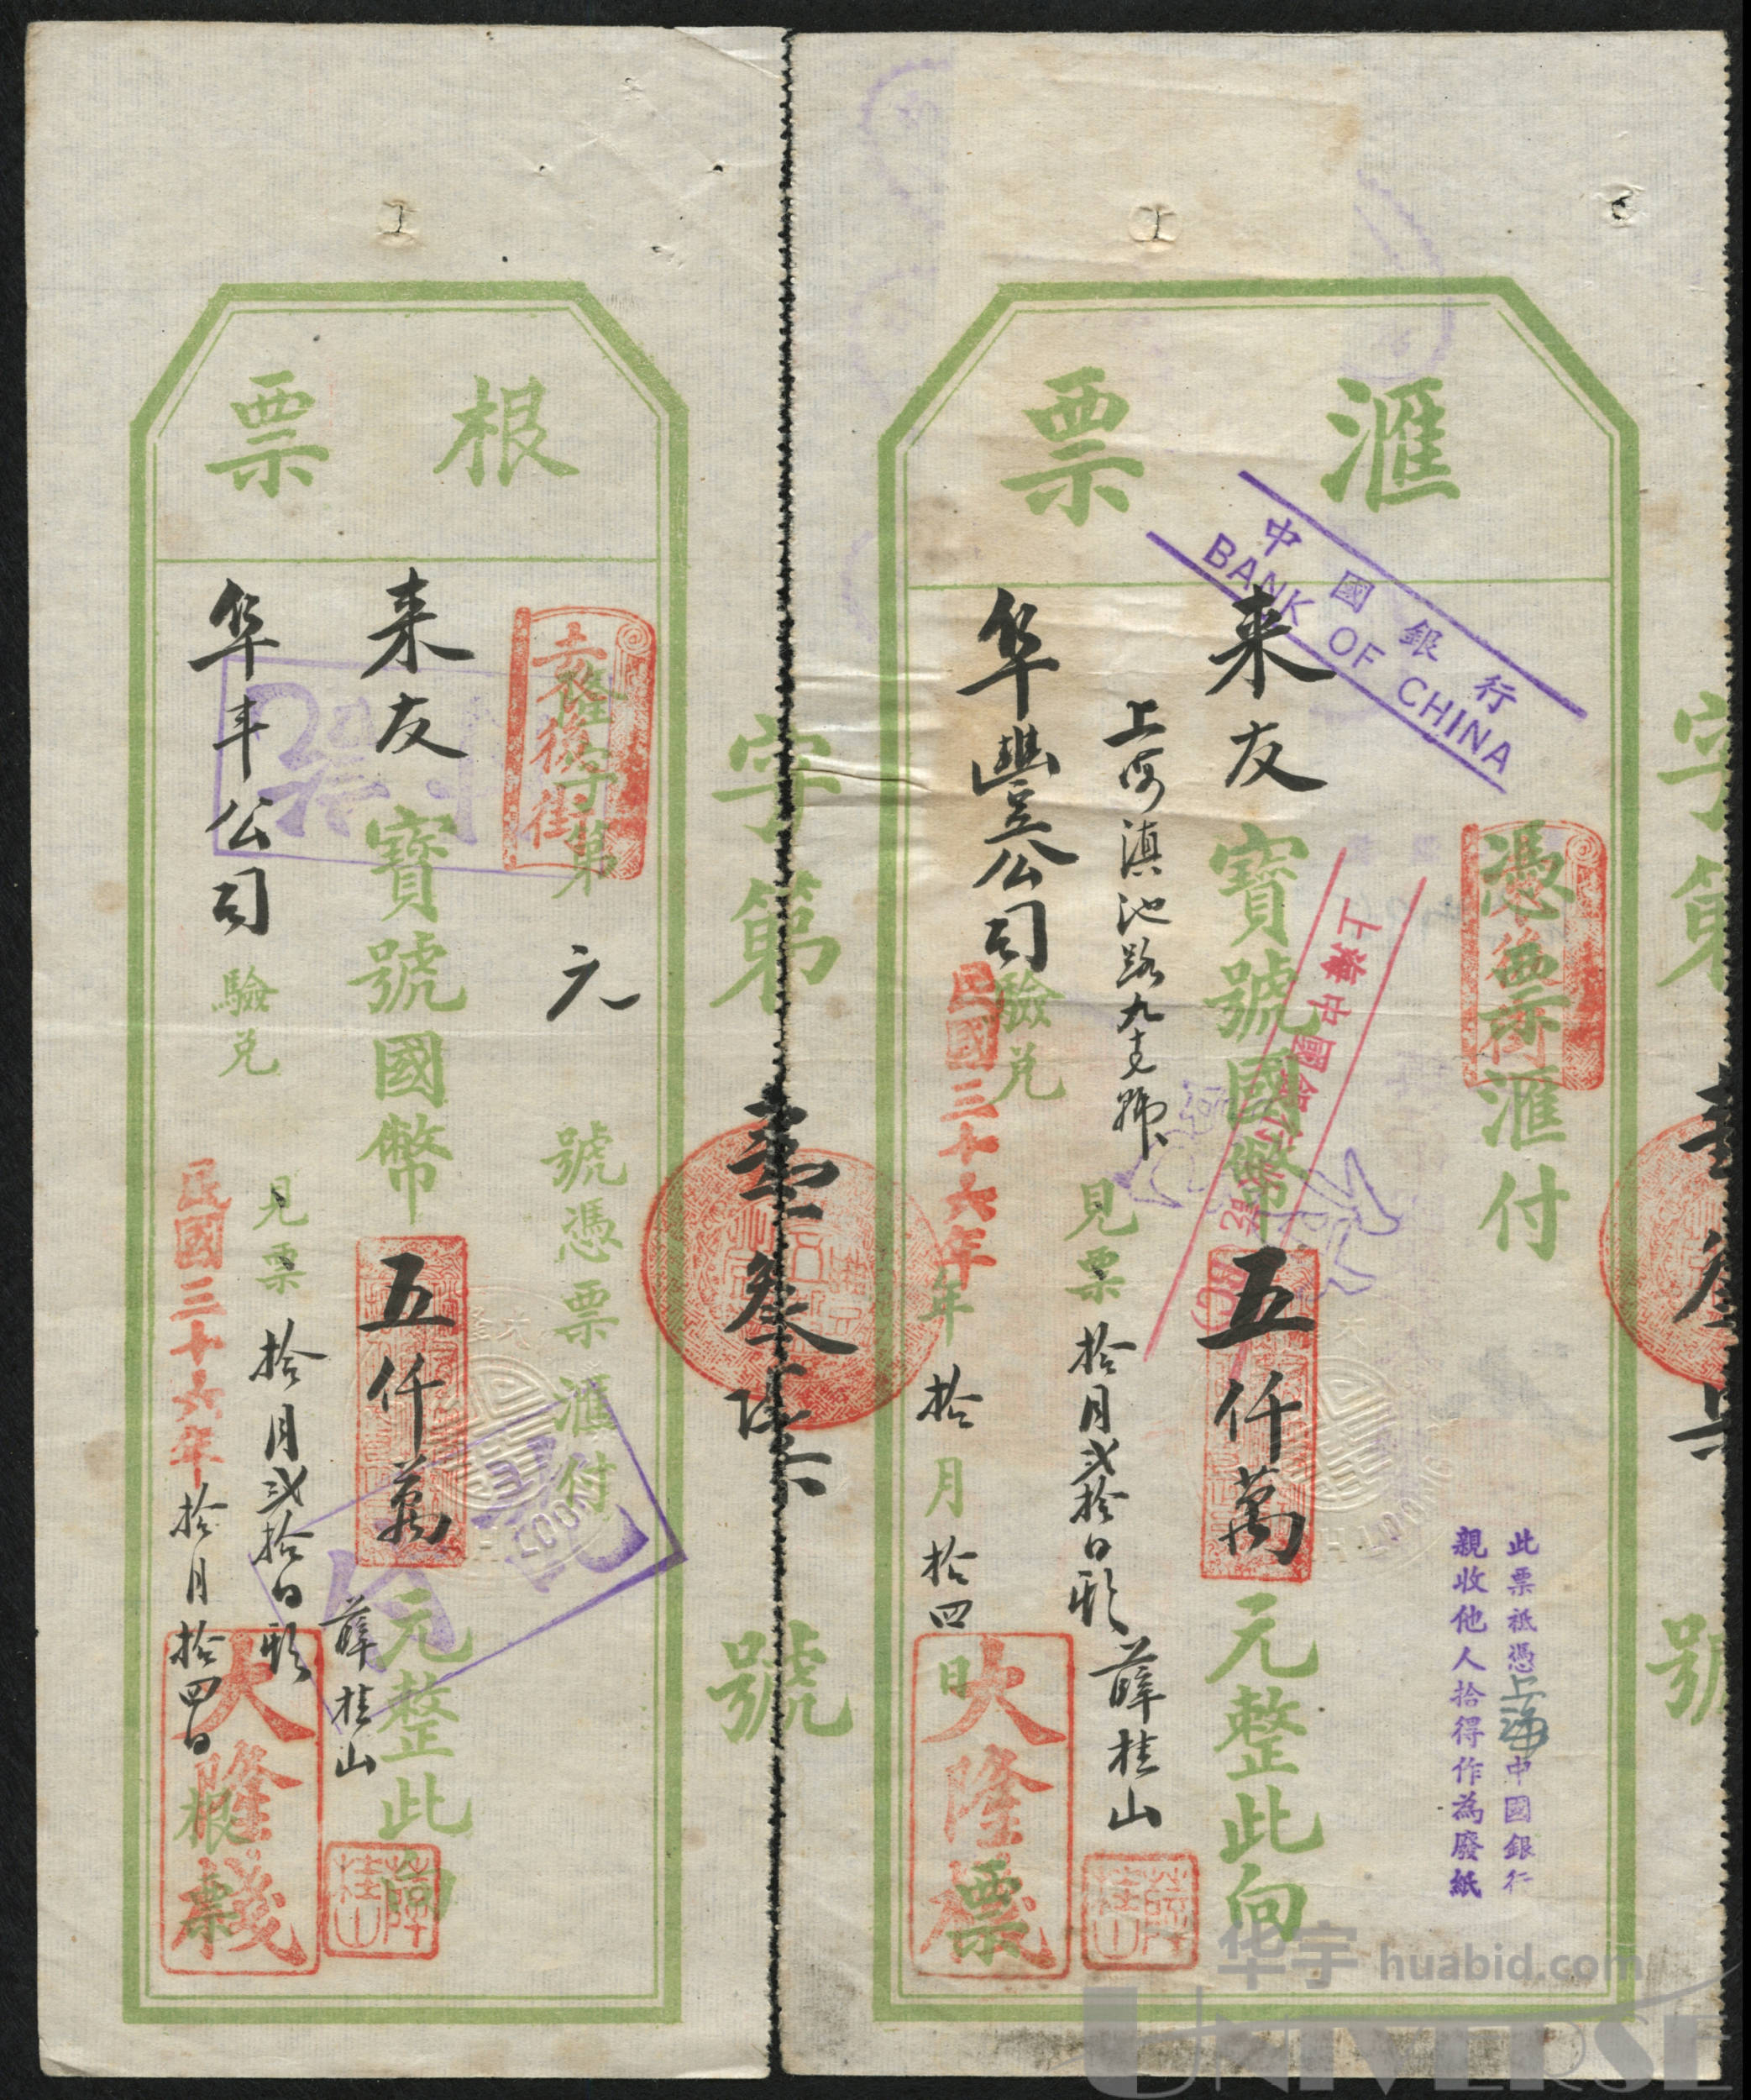 滙票
憑票滙付
来友寶號國幣五仟萬元整此向
上海滇池路九十號
華豐公司驗兑
見票拾月弍拾日期 薛桂山
民國三十六年 年拾月拾四日
大隆棧
票
中國銀行
BANK OF CHINA
上海中國銀行
此票祗憑上海中國銀行
親收他人拾得作為廢紙
字第
壹叁
號
字第壹叁陸號
根票
隆字第元號憑票滙付
後街
来友寶號國幣五仟萬元整此向
华丰公司驗兑
見票拾月弍拾日期 薛桂山
民國三十六年拾月拾四日
大隆棧
根票
薛桂山
薛桂山
LOONG
华宇 huabid.com
UNIVERSE